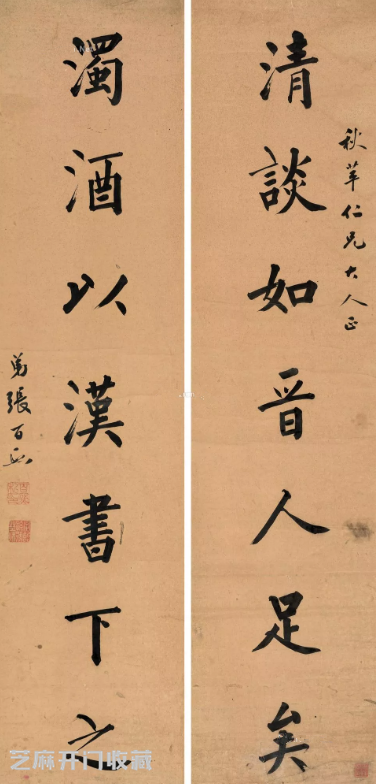 秋苹仁兄大人正
清談如晉人足矣
濁酒以漢書下之
弟張百熙
芝麻开门收藏